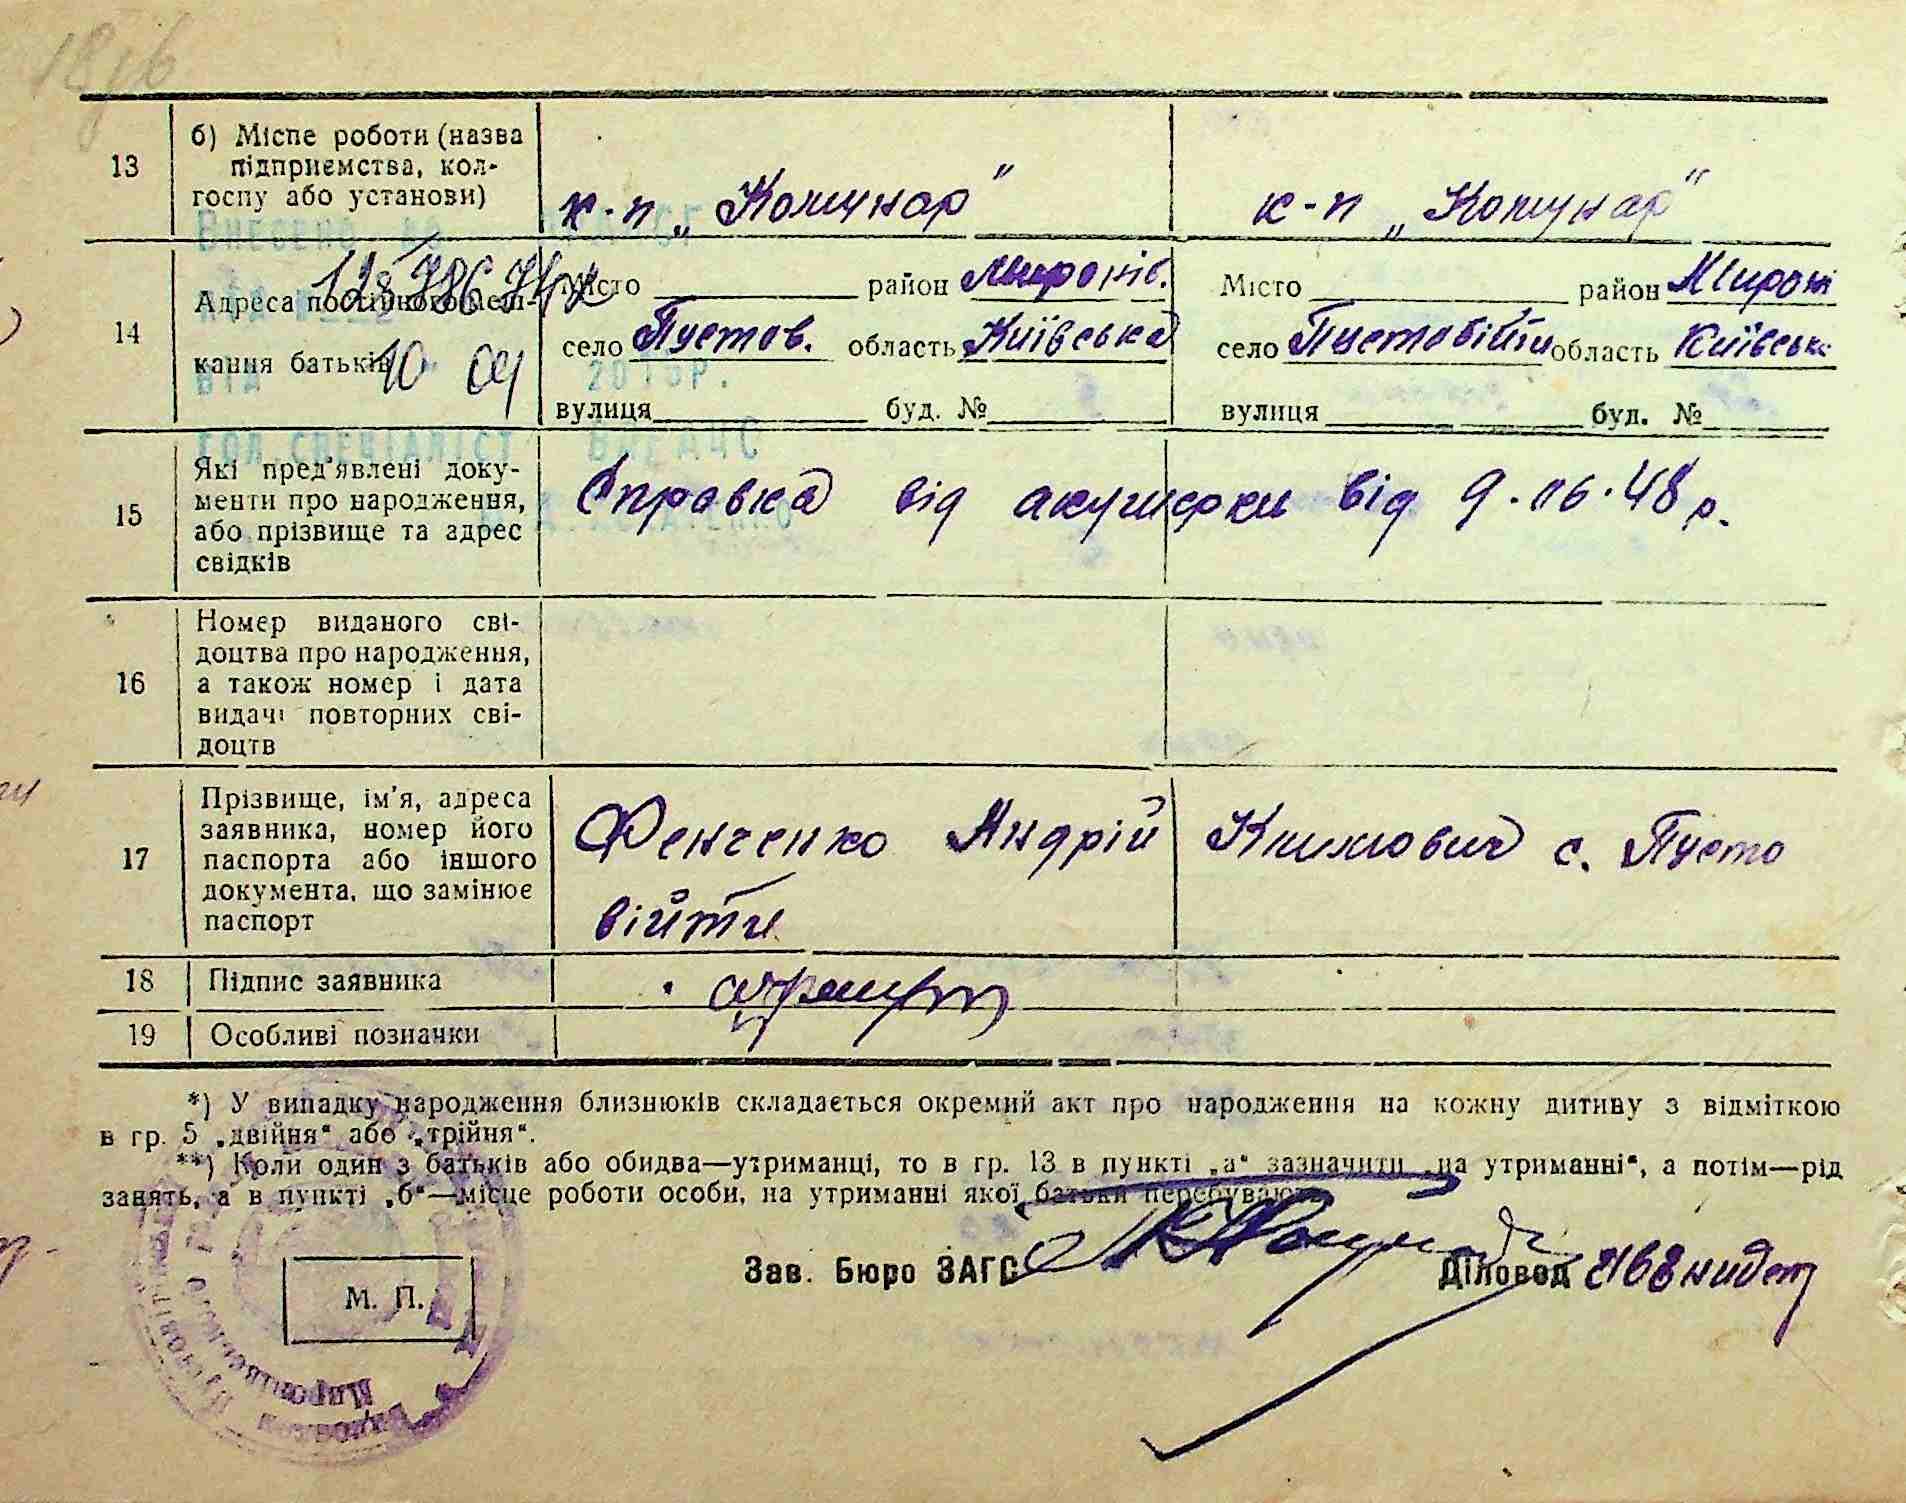 13
б) Місце роботи (назва
підприємства, кол-
госпу або установи)
к-п „Комунар"
к-п „Комунар"
14
Адреса постійного меш-
кання батьків
Місто район Миронів.
село Пустов. область Київська
вулиця буд. №
Місто район Мирон
село Пустовійти область Київськ
вулиця буд. №
10 04
2015р.
ГОЛ.СПЕЦІАЛІСТ
15
Які пред'явлені доку-
менти про народження,
або прізвище та адрес
свідків
Справка від акушерки від 9.06.48 р.
16
Номер виданого сві-
доцтва про народження,
а також номер і дата
видачі повторних сві-
доцтв
17
Прізвище, ім'я, адреса
заявника, номер його
паспорта або іншого
документа, що замінює
паспорт
Фенченко Андрій Климович с. Пусто
війти
18
Підпис заявника
19
Особливі позначки
*) У випадку народження близнюків складається окремий акт про народження на кожну дитину з відміткою
в гр. 5 „двійня" або „трійня".
**) Коли один з батьків або обидва—утриманці, то в гр. 13 в пункті „а" зазначити „на утриманні", а потім—рід
занять, а в пункті „б"—місце роботи особи, на утриманні якої батьки перебувають.
М. П.
Зав. Бюро ЗАГС
Діловод